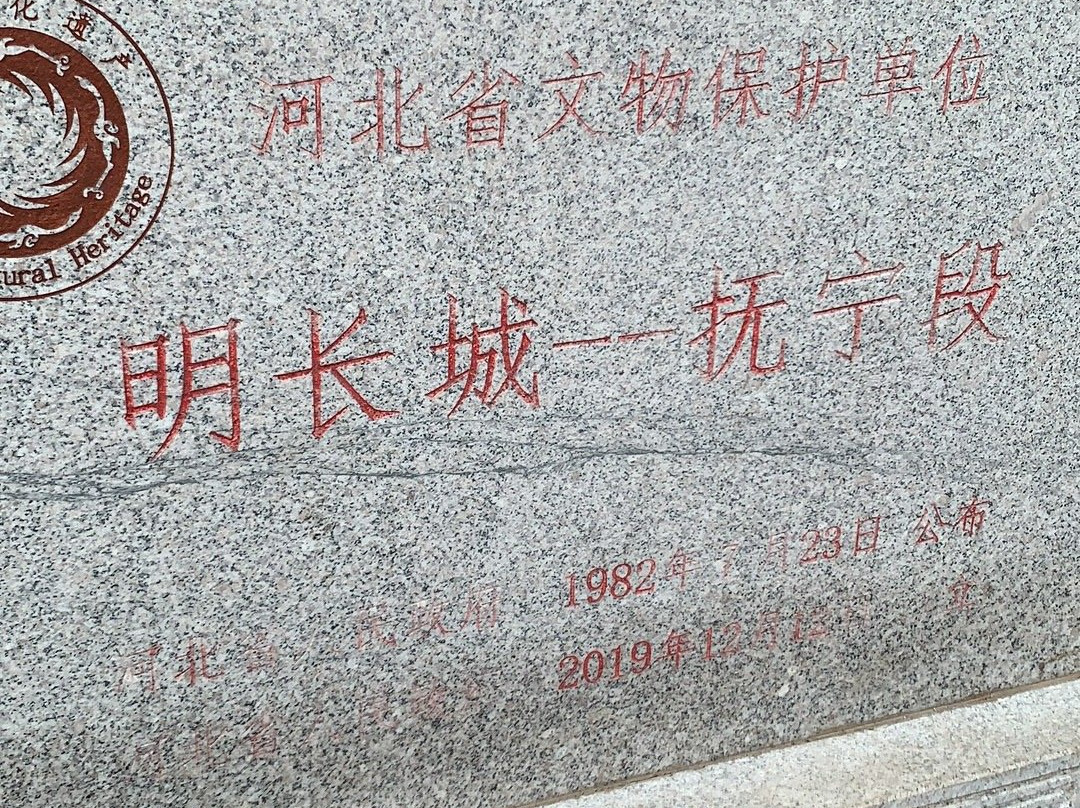 化遗产
河北省文物保护单位
ural Heritage
明长城——抚宁段
河北省人民政府 1982年7月23日 公布
河北省人民政府 2019年12月12日 立